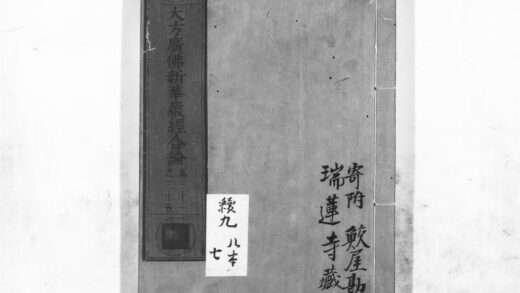 大方廣佛新華嚴經合論
寄附 鮫屋勘
瑞蓮寺藏
續九
八本
七